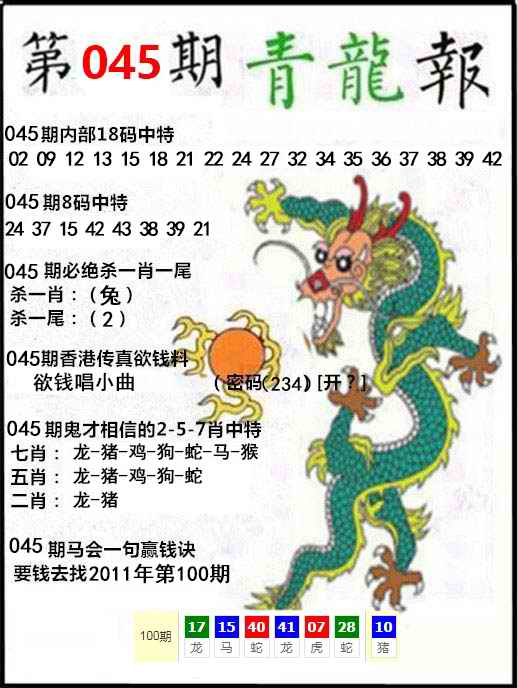 第045期青龍報
045期内部18码中特
02 09 12 13 15 18 21 22 24 27 32 34 35 36 37 38 39 42
045期8码中特
24 37 15 42 43 38 39 21
045 期必绝杀一肖一尾
杀一肖：（兔）
杀一尾：（2）
045期香港传真欲钱料
欲钱唱小曲 （密码(234)[开？]
045期鬼才相信的2-5-7肖中特
七肖： 龙-猪-鸡-狗-蛇-马-猴
五肖： 龙-猪-鸡-狗-蛇
二肖： 龙-猪
045 期马会一句赢钱诀
要钱去找2011年第100期
100期 17 15 40 41 07 28 10
龙 马 蛇 龙 虎 蛇 猪